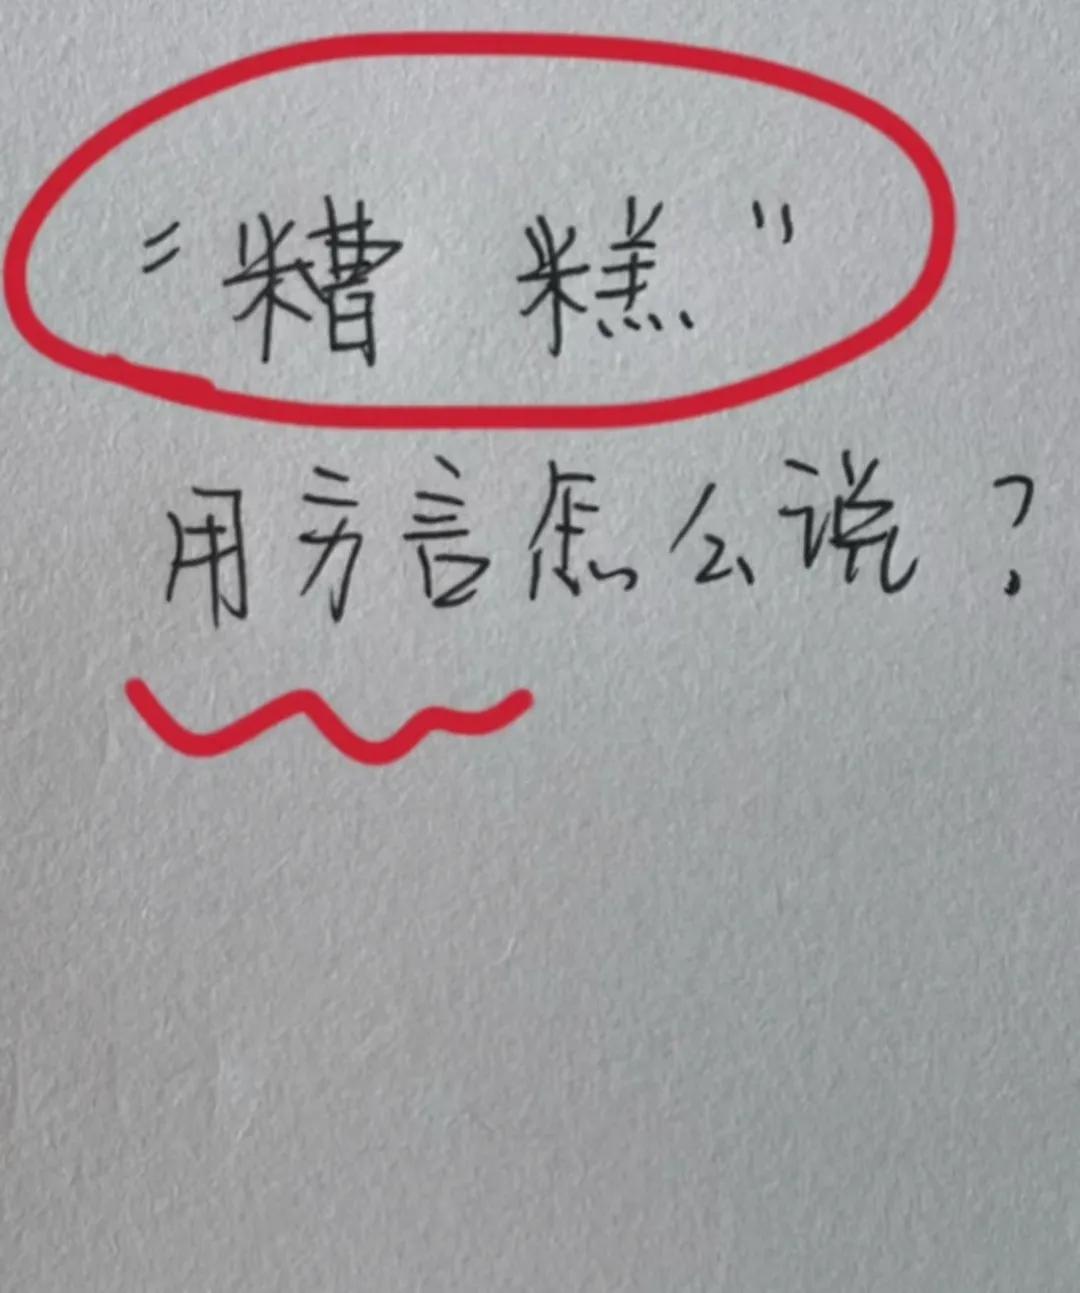 "糟糕"
用方言怎么说？